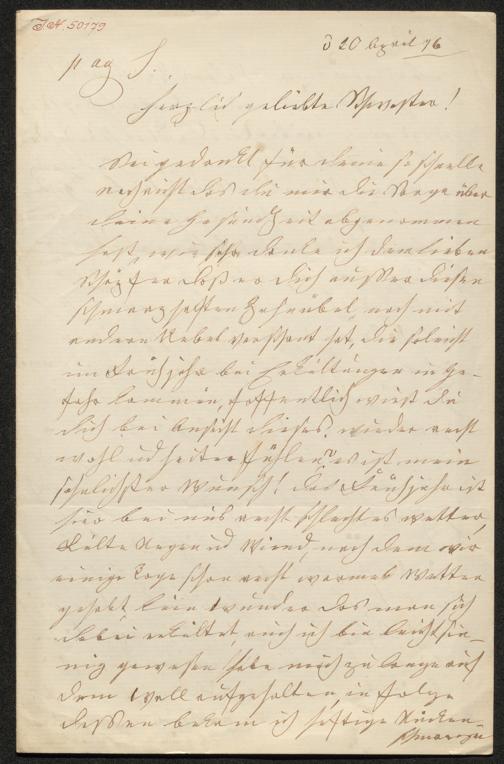 J.N. 50179
d 20 April 76
p ag S.
Herzlich geliebte Schwester!
Sei gedankt für deine so schnelle
Nachricht das du mir die Sorge über
deine Gesundheit abgenommen
hast, wie sehr danke ich dem lieben
Schöpfer daß er dich ausser diesen
schmerzhaften Zahnübel, noch mit
andern Uebel verschont hat, die so leicht
im Frühjahr bei Erkältungen in Ge-
fahr kommen, hoffentlich wirst du
dich bei Ansicht dieses wieder recht
wohl und heiter fühlen, es ist mein
sehnlichster Wunsch! Das Frühjahr ist
hier bei uns recht schlechtes Wetter,
Kälte Regen und Wind, nach dem wir
einige Tage schon recht warmes Wetter
gehabt kein Wunder das man sich
dabei erkältet, auch ich bin leichtsin-
nig gewesen habe mich zu lange auf
dem Wall aufgehalten, in folge
dessen bekam ich heftige Rücken-
schmerzen